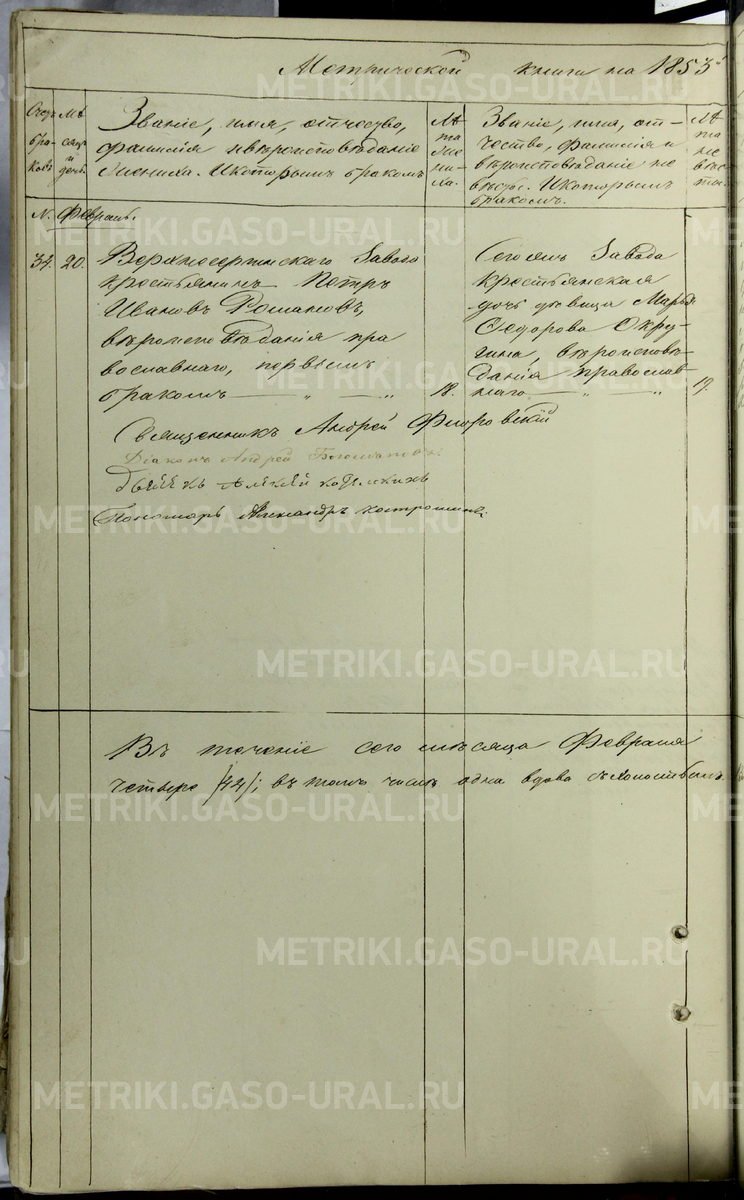 Метрической книги на 1853
Счетъ браковъ.
Мѣсяцъ и день.
Званіе, имя, отчество,
фамилія и вѣроисповѣданіе
жениха. И которымъ бракомъ
Лѣта жениха.
Званіе, имя, от-
чество, фамилія и
вѣроисповѣданіе не
вѣсты. И которымъ
бракомъ.
Лѣта невѣсты.
N. Февраль.
34. 20.
Верхнесергинскаго Завода
крестьянинъ Петръ
Ивановъ Романовъ,
вѣроисповѣданія пра
вославнаго, первымъ
бракомъ
18.
Сего жъ Завода
крестьянская
дочь дѣвица Марья
Ѳедорова
вѣроисповѣ-
данія православ
наго
19.
Священникъ Андрей Флоровскій
Діаконъ Андрей
Дьячекъ Алексѣй
Пономарь Александръ
Въ теченіе сего мѣсяца Февраля
четыре /44/; въ томъ числѣ одна вдова съ холостымъ.
METRIKI.GASO-URAL.RU